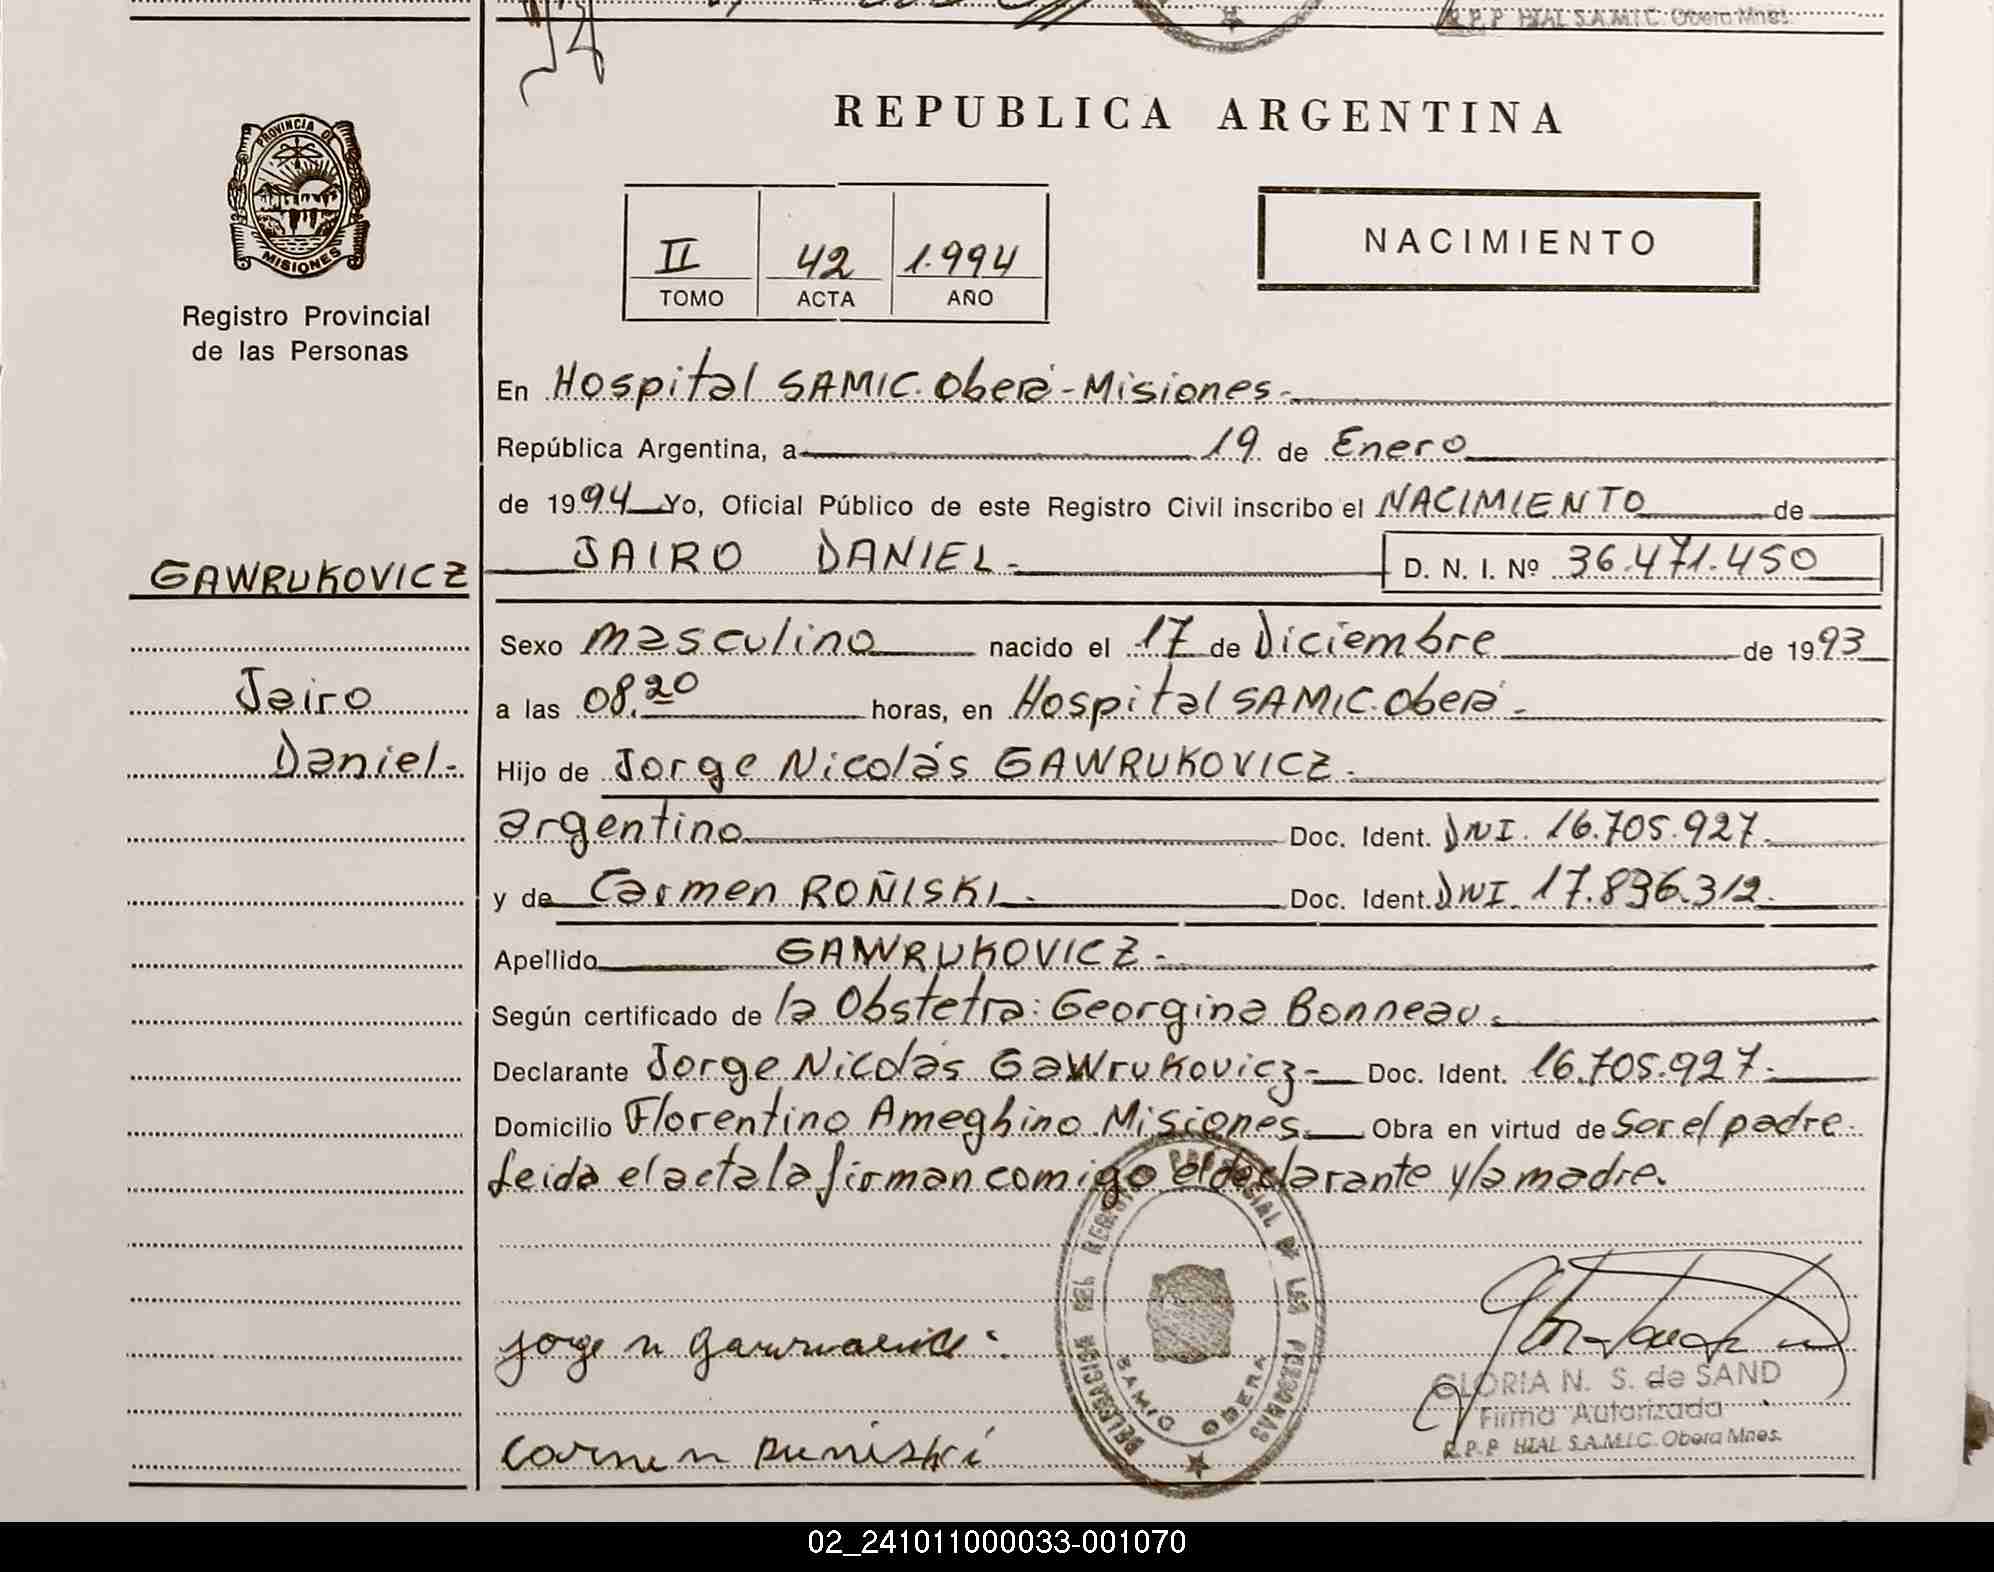 R.P.P HIAL S.A.M.I.C. Obera Mnes.
REPUBLICA ARGENTINA
PROVINCIA DE
MISIONES
Registro Provincial
de las Personas
II 42 1.994
TOMO ACTA AÑO
NACIMIENTO
En Hospital SAMIC. Oberá - Misiones.-
República Argentina, a 19 de Enero
de 1994 Yo, Oficial Público de este Registro Civil inscribo el NACIMIENTO de
JAIRO DANIEL.- D. N. I. Nº 36.471.450
GAWRUKOVICZ
Jairo
Daniel.-
Sexo masculino nacido el 17 de Diciembre de 1993
a las 08.20 horas, en Hospital SAMIC. Oberá.-
Hijo de Jorge Nicolás GAWRUKOVICZ.-
argentino Doc. Ident. DNI. 16.705.927.-
y de Carmen ROÑISKI.- Doc. Ident. DNI. 17.836.312.-
Apellido GAWRUKOVICZ.-
Según certificado de la Obstetra: Georgina Bonneau.-
Declarante Jorge Nicolás Gawrukovicz.- Doc. Ident. 16.705.927.-
Domicilio Florentino Ameghino Misiones. Obra en virtud de ser el padre.-
Leida el acta la firman comigo el declarante y la madre.
DELEGACION DEL REGISTRO PROVINCIAL DE LAS PERSONAS
SAMIC OBERA
Jorge n
Carmen
GLORIA N. S. de SAND
Firma Autorizada
R.P.P HIAL S.A.M.I.C. Obera Mnes.
02_241011000033-001070